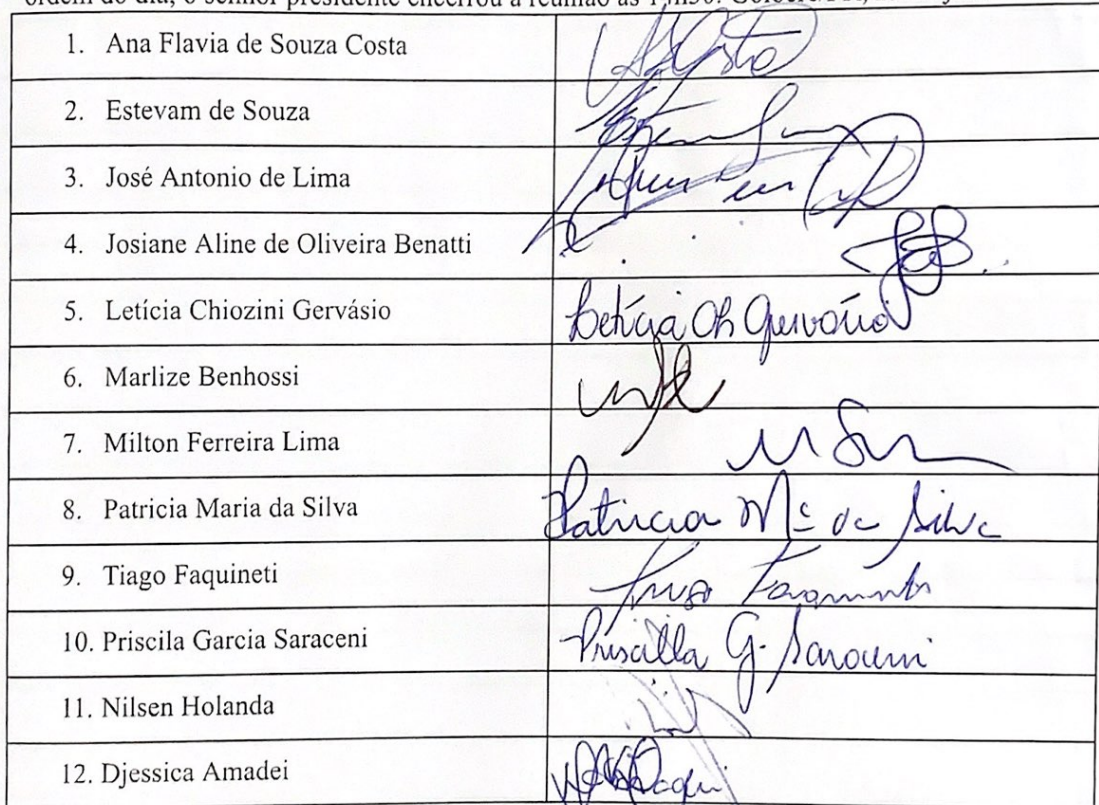 ordem do dia, o senhor presidente encerrou a reunião às 14h30.
1. Ana Flavia de Souza Costa
2. Estevam de Souza
3. José Antonio de Lima
4. Josiane Aline de Oliveira Benatti
5. Letícia Chiozini Gervásio Letícia Ch Gervásio
6. Marlize Benhossi
7. Milton Ferreira Lima
8. Patricia Maria da Silva Patricia Mª da Silva
9. Tiago Faquineti
10. Priscila Garcia Saraceni Priscilla G. Saraceni
11. Nilsen Holanda
12. Djessica Amadei